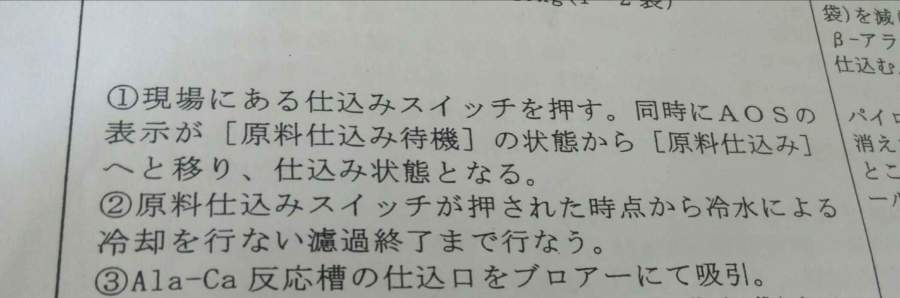 袋)を減
β-アラ
仕込む
①現場にある仕込みスイッチを押す。同時にAOSの
表示が[原料仕込み待機]の状態から[原料仕込み]
へと移り、仕込み状態となる。
②原料仕込みスイッチが押された時点から冷水による
冷却を行ない濾過終了まで行なう。
③Ala-Ca反応槽の仕込口をブロアーにて吸引。
パイロ
消え
とこ
ール